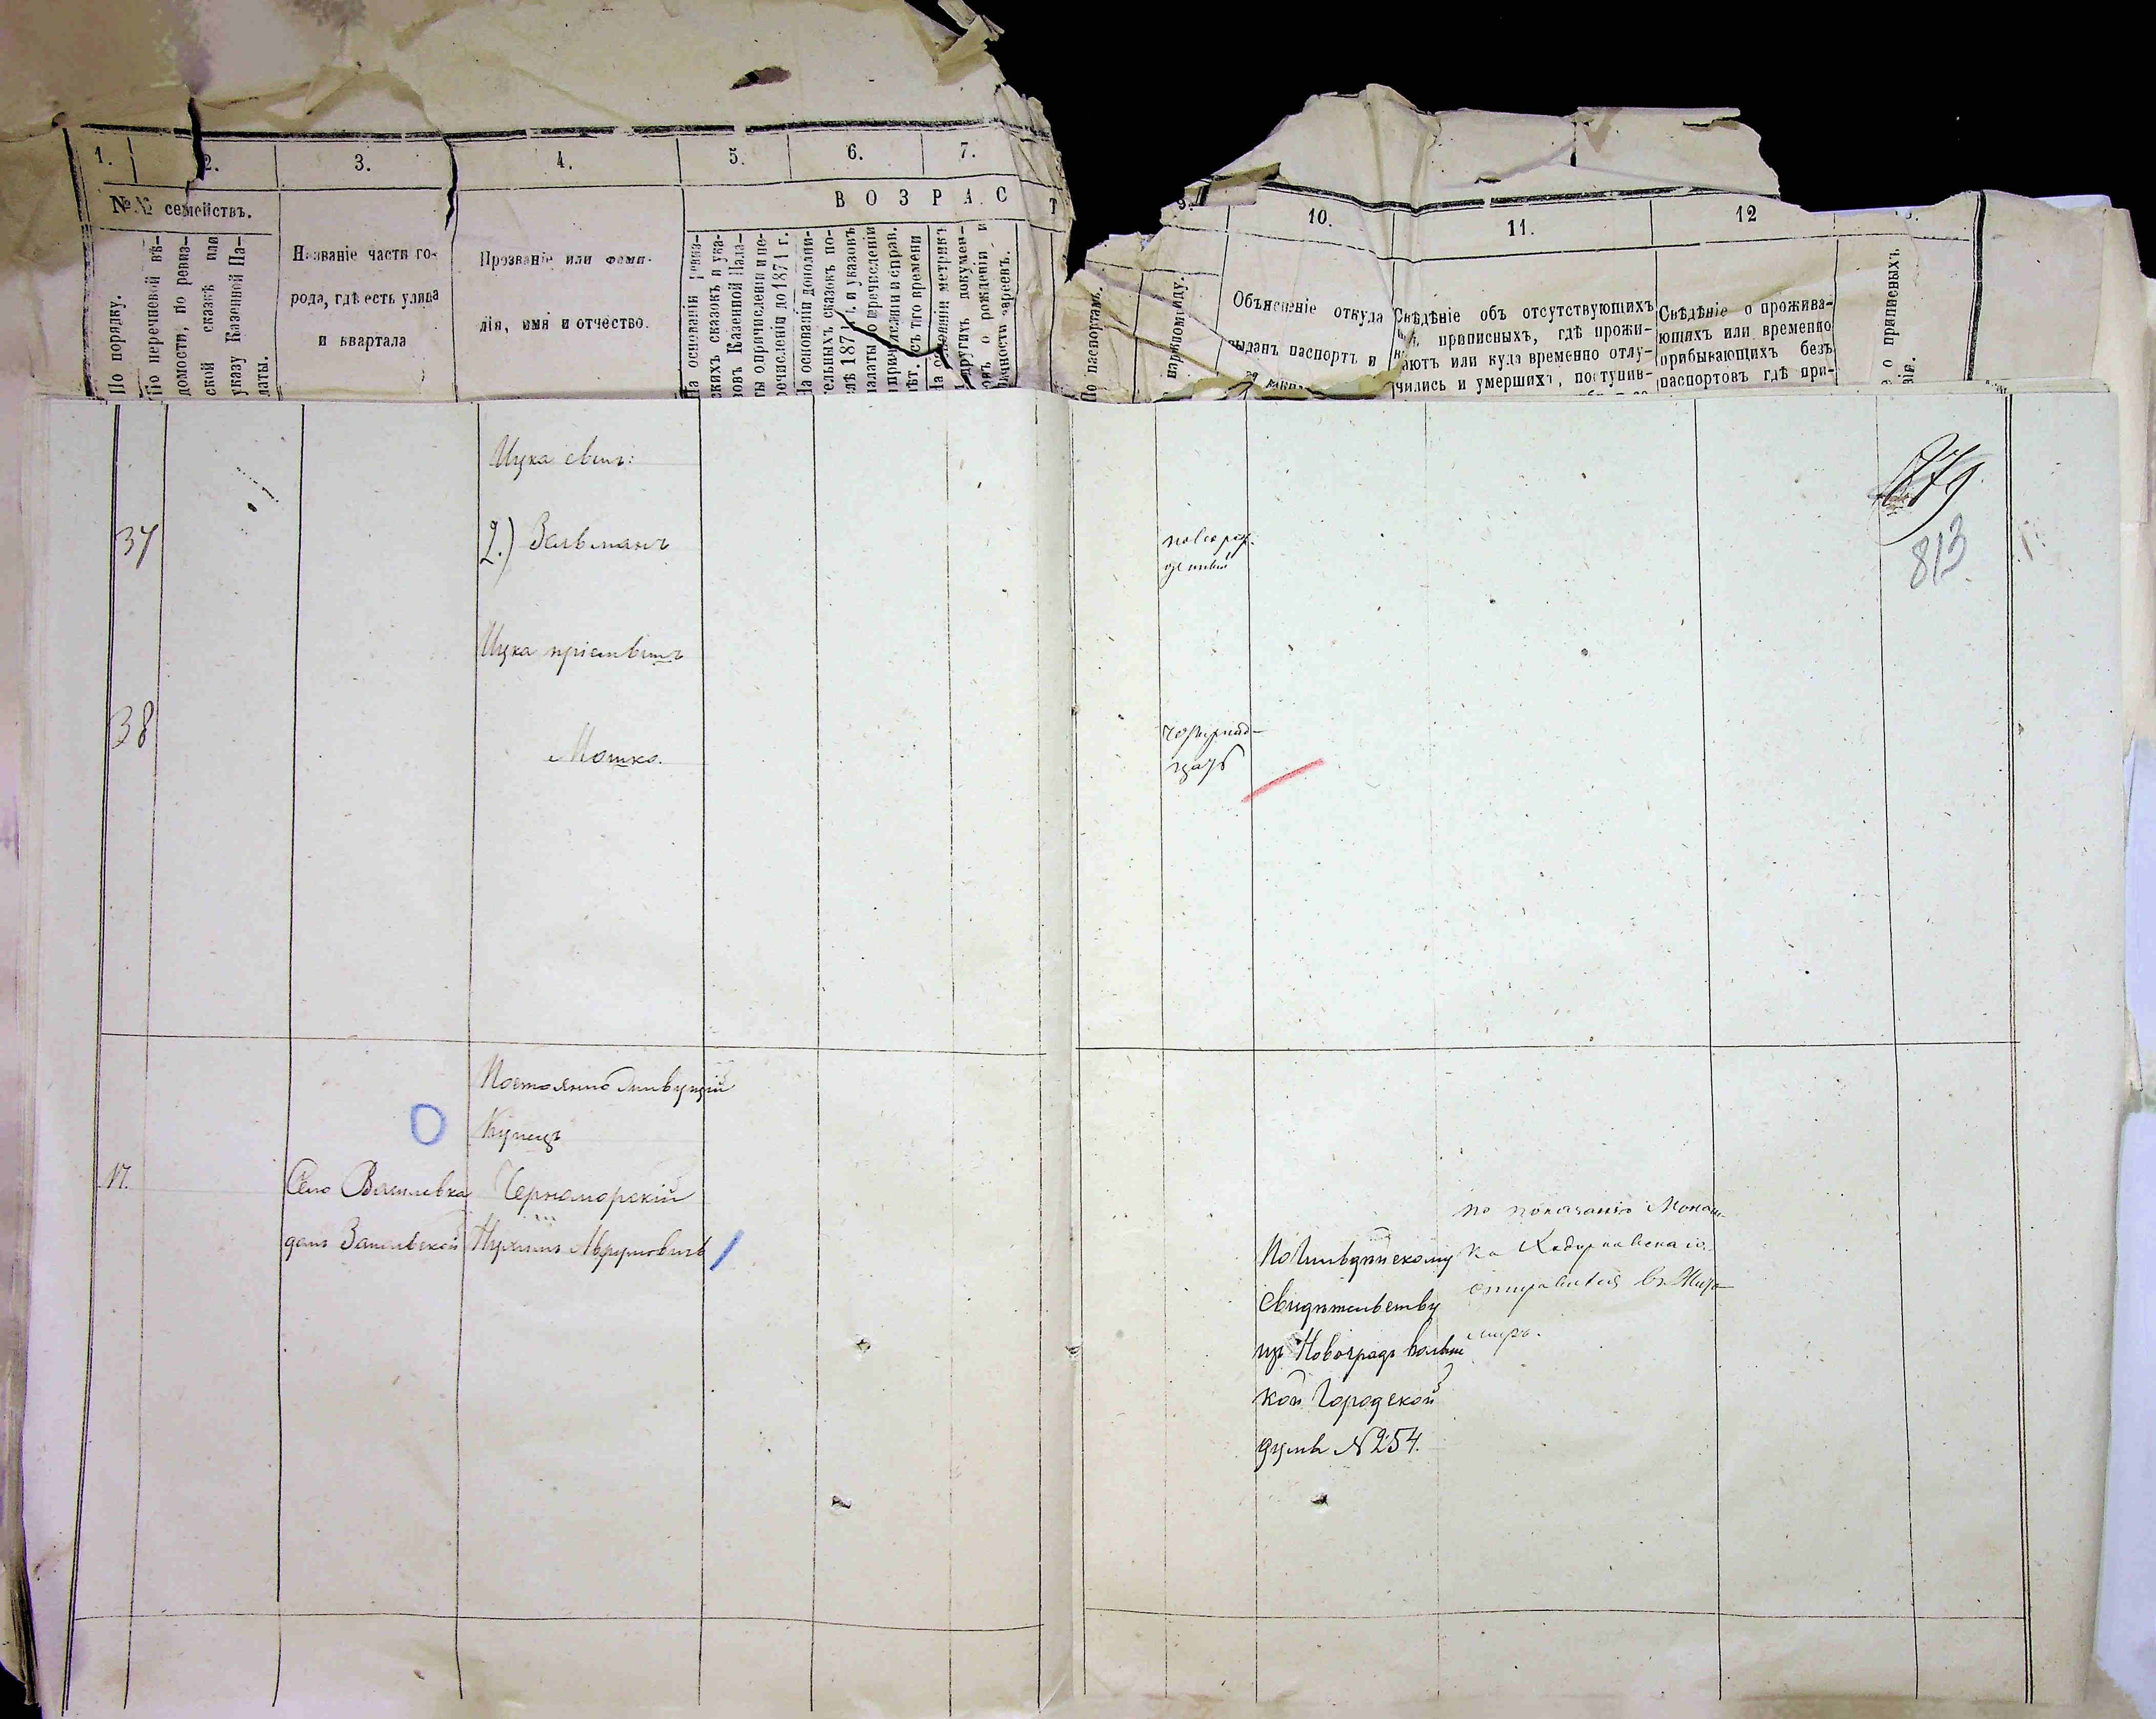 1.
2.
3.
4.
5.
6.
7.
10.
11.
12
№№ семействъ.
По порядку.
По перечневой вѣ-
домости, по ревиз-
ской сказкѣ или
указу Казенной Па-
латы.
Названіе части го-
рода, гдѣ есть улица
и квартала
Прозваніе или фами-
лія, имя и отчество.
В О З Р А С Т
На основаніи ревиз-
скихъ сказокъ и ука-
зовъ Казенной Пала-
ты о причисленіи и пе-
речисленіи до 1874 г.
На основаніи дополни-
тельныхъ сказокъ по-
и указовъ
палаты о перечисленіи
и причисленіи и справ.
лѣт. съ того времени
На основаніи метрикъ
и другихъ докумен-
овъ о рожденіи и
евреевъ.
По паспортамъ.
наружному виду.
Объясненіе откуда
выданъ паспортъ и
Свѣдѣніе объ отсутствующихъ
приписныхъ, гдѣ прожи-
ваютъ или куда временно отлу-
чились и умершихъ, поступив-
Свѣдѣніе о прожива-
ющихъ или временно
прибыкающихъ безъ
паспортовъ гдѣ при-
о приписныхъ
Ицка сынъ:
813
37
2.) Зельманъ
новорож-
денный
Ицка пріемышъ
38
Мошко.
четырнад-
цать
Постоянно живущій
Купецъ
17.
Село Василевка
Черноморскій
домъ
Нухимъ
По
свидѣтельству
изъ Новоградъ волын
кой Городской
думы №254.
по показанію
ка
отправился въ Жито
миръ.